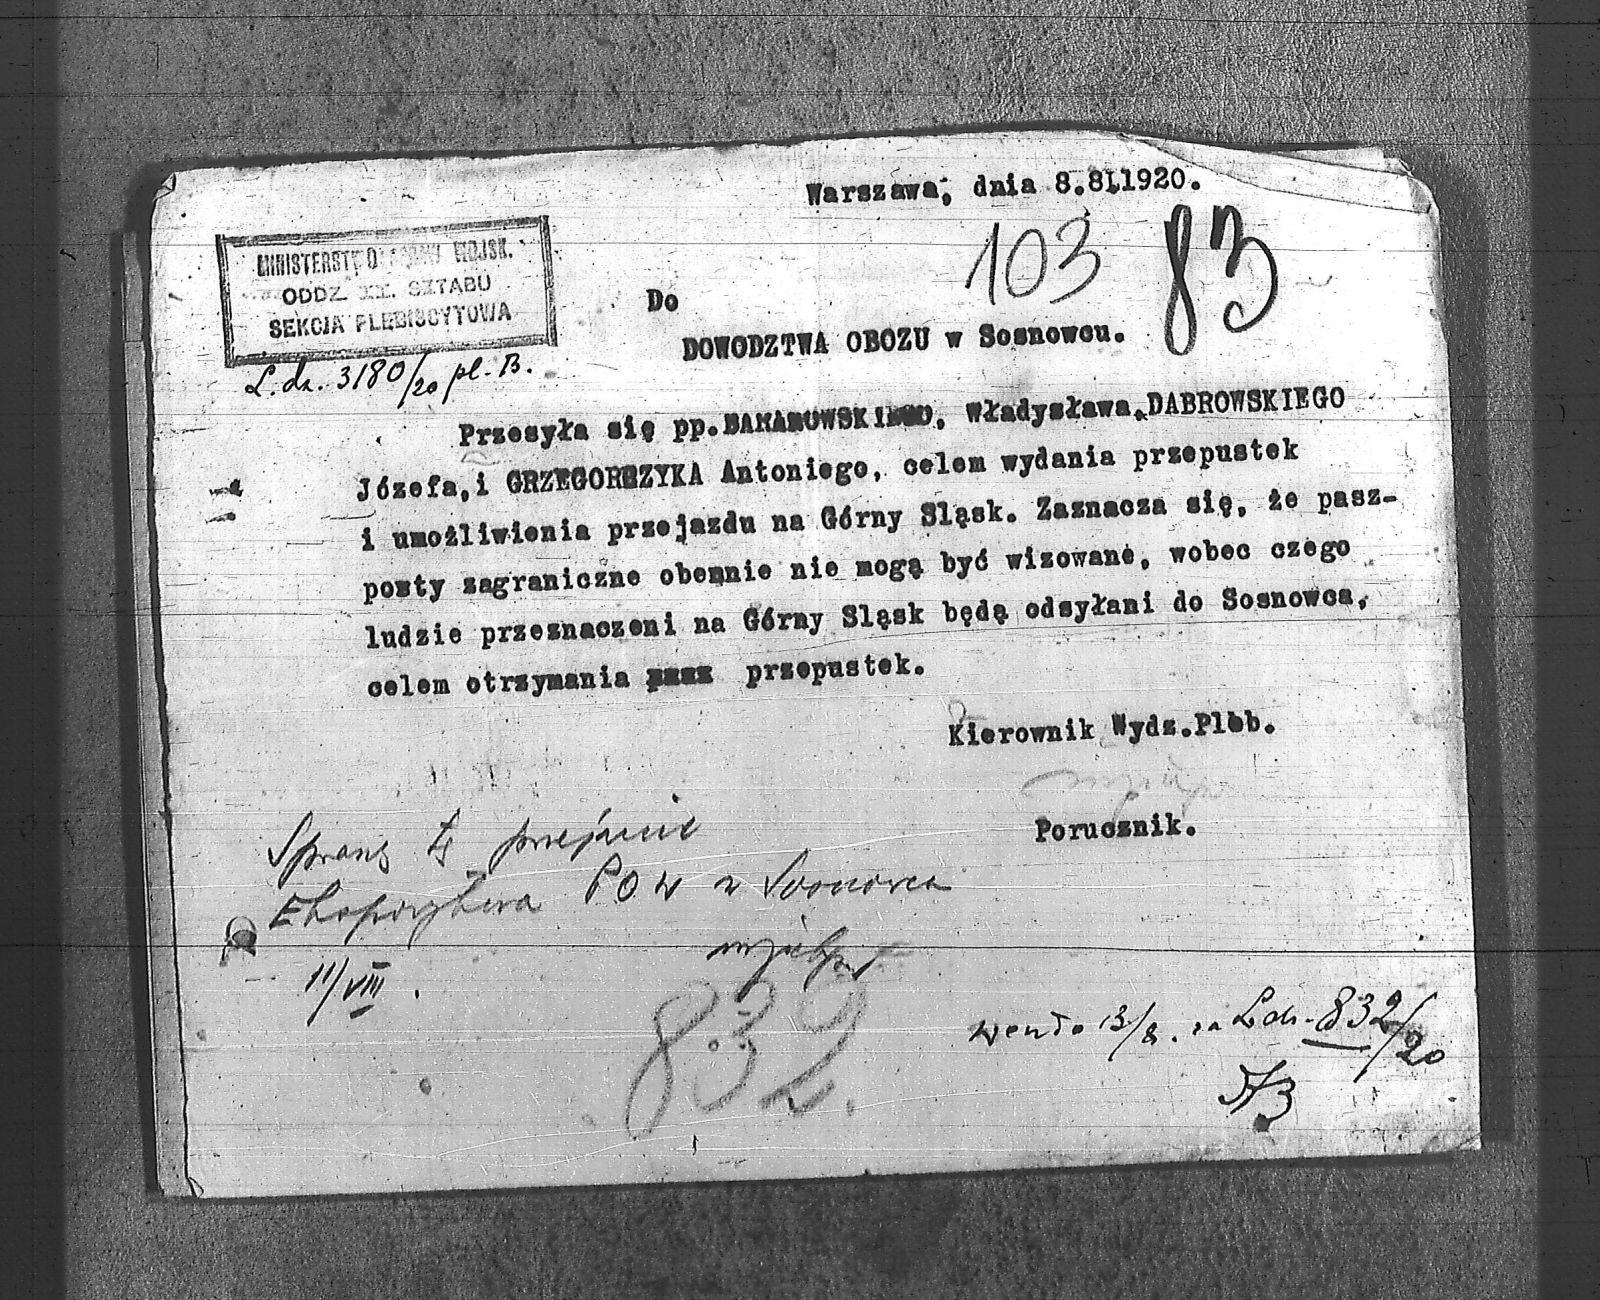 Warszawa, dnia 8.8.1920.
103 83
MINISTERSTWO OBRONY WOJSK.
ODDZ. II. SZTABU
SEKCJA PLEBISCYTOWA
L.dz. 3180/20 pl. B.
Do
DOWODZTWA OBOZU w Sosnowcu.
Przesyła się pp. Władysława, DABROWSKIEGO
Józefa, i GRZEGORCZYKA Antoniego, celem wydania przepustek
i umożliwienia przejazdu na Górny Sląsk. Zaznacza się, że pasz-
porty zagraniczne obecnie nie mogą być wizowane, wobec czego
ludzie przeznaczeni na Górny Sląsk będą odsyłani do Sosnowca,
celem otrzymania przepustek.
Kierownik Wydz.Pleb.
Porucznik.
Sprawę tę przejmie
Ekspozytura POW w Sosnowcu
11/VIII.
832
weszło 13/8. za Ldz. 832/20